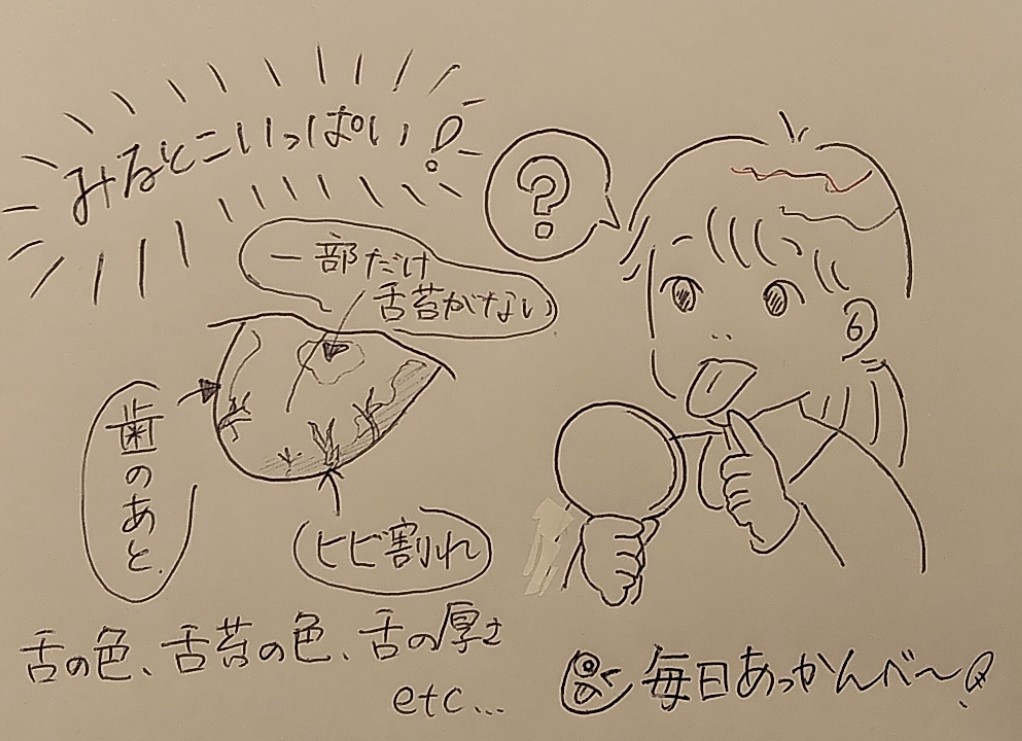 みるとこいっぱい!
?
一部だけ
舌苔がない
歯のあと
ヒビ割れ
舌の色、舌苔の色、舌の厚さ
etc...
毎日あっかんべ〜!